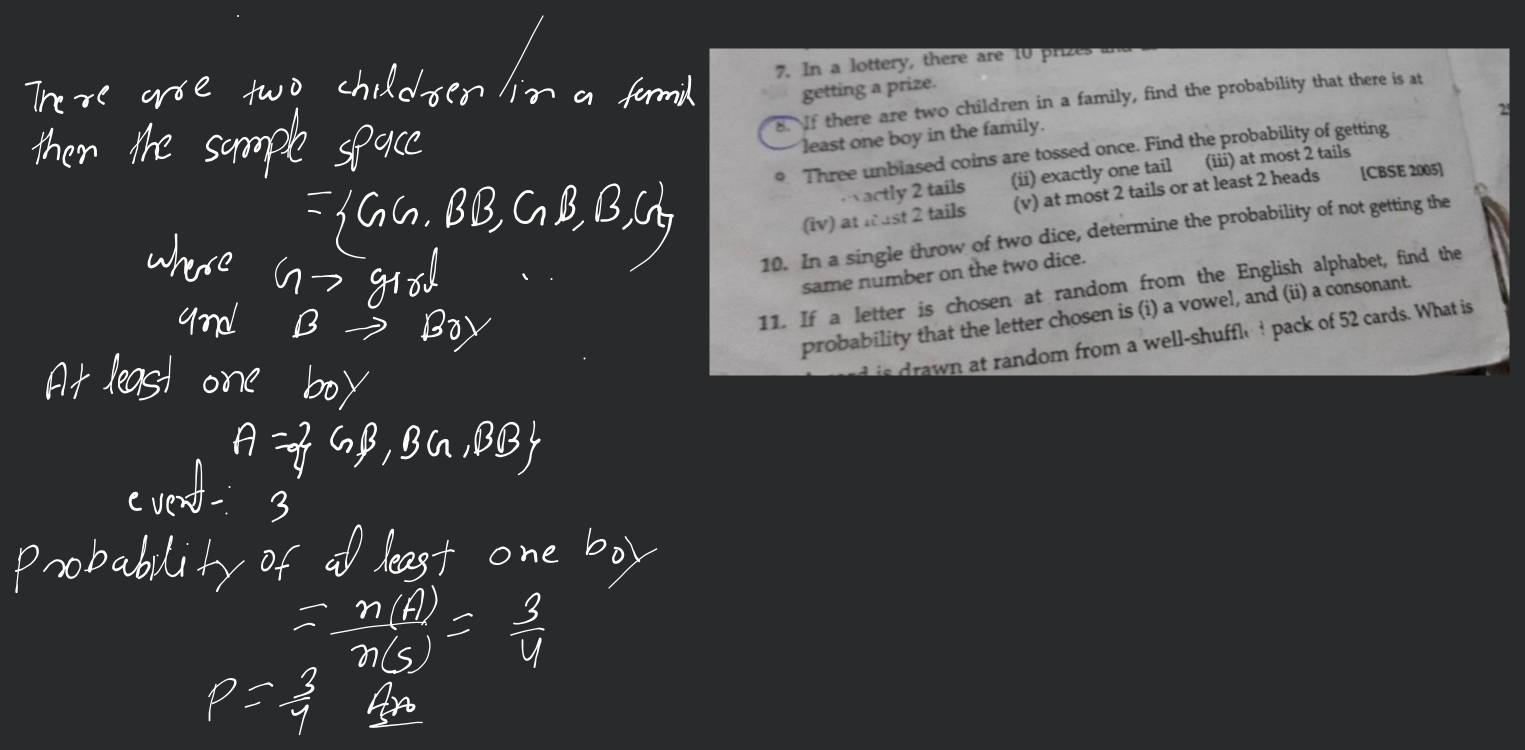 There are two children in a famil
then the sample space
= {GG, BB, GB, B,G}
where G → girl
and B → Boy
At least one boy
A = { GB, BG, BB}
event-: 3
Probability of at least one boy
= n(A)/n(S) = 3/4
P = 3/4 Ans
7. In a lottery, there are 10 prizes and
getting a prize.
8. If there are two children in a family, find the probability that there is at
least one boy in the family.
Three unbiased coins are tossed once. Find the probability of getting
actly 2 tails (ii) exactly one tail (iii) at most 2 tails
(iv) at least 2 tails (v) at most 2 tails or at least 2 heads [CBSE 2005]
10. In a single throw of two dice, determine the probability of not getting the
same number on the two dice.
11. If a letter is chosen at random from the English alphabet, find the
probability that the letter chosen is (i) a vowel, and (ii) a consonant.
is drawn at random from a well-shuffl pack of 52 cards. What is